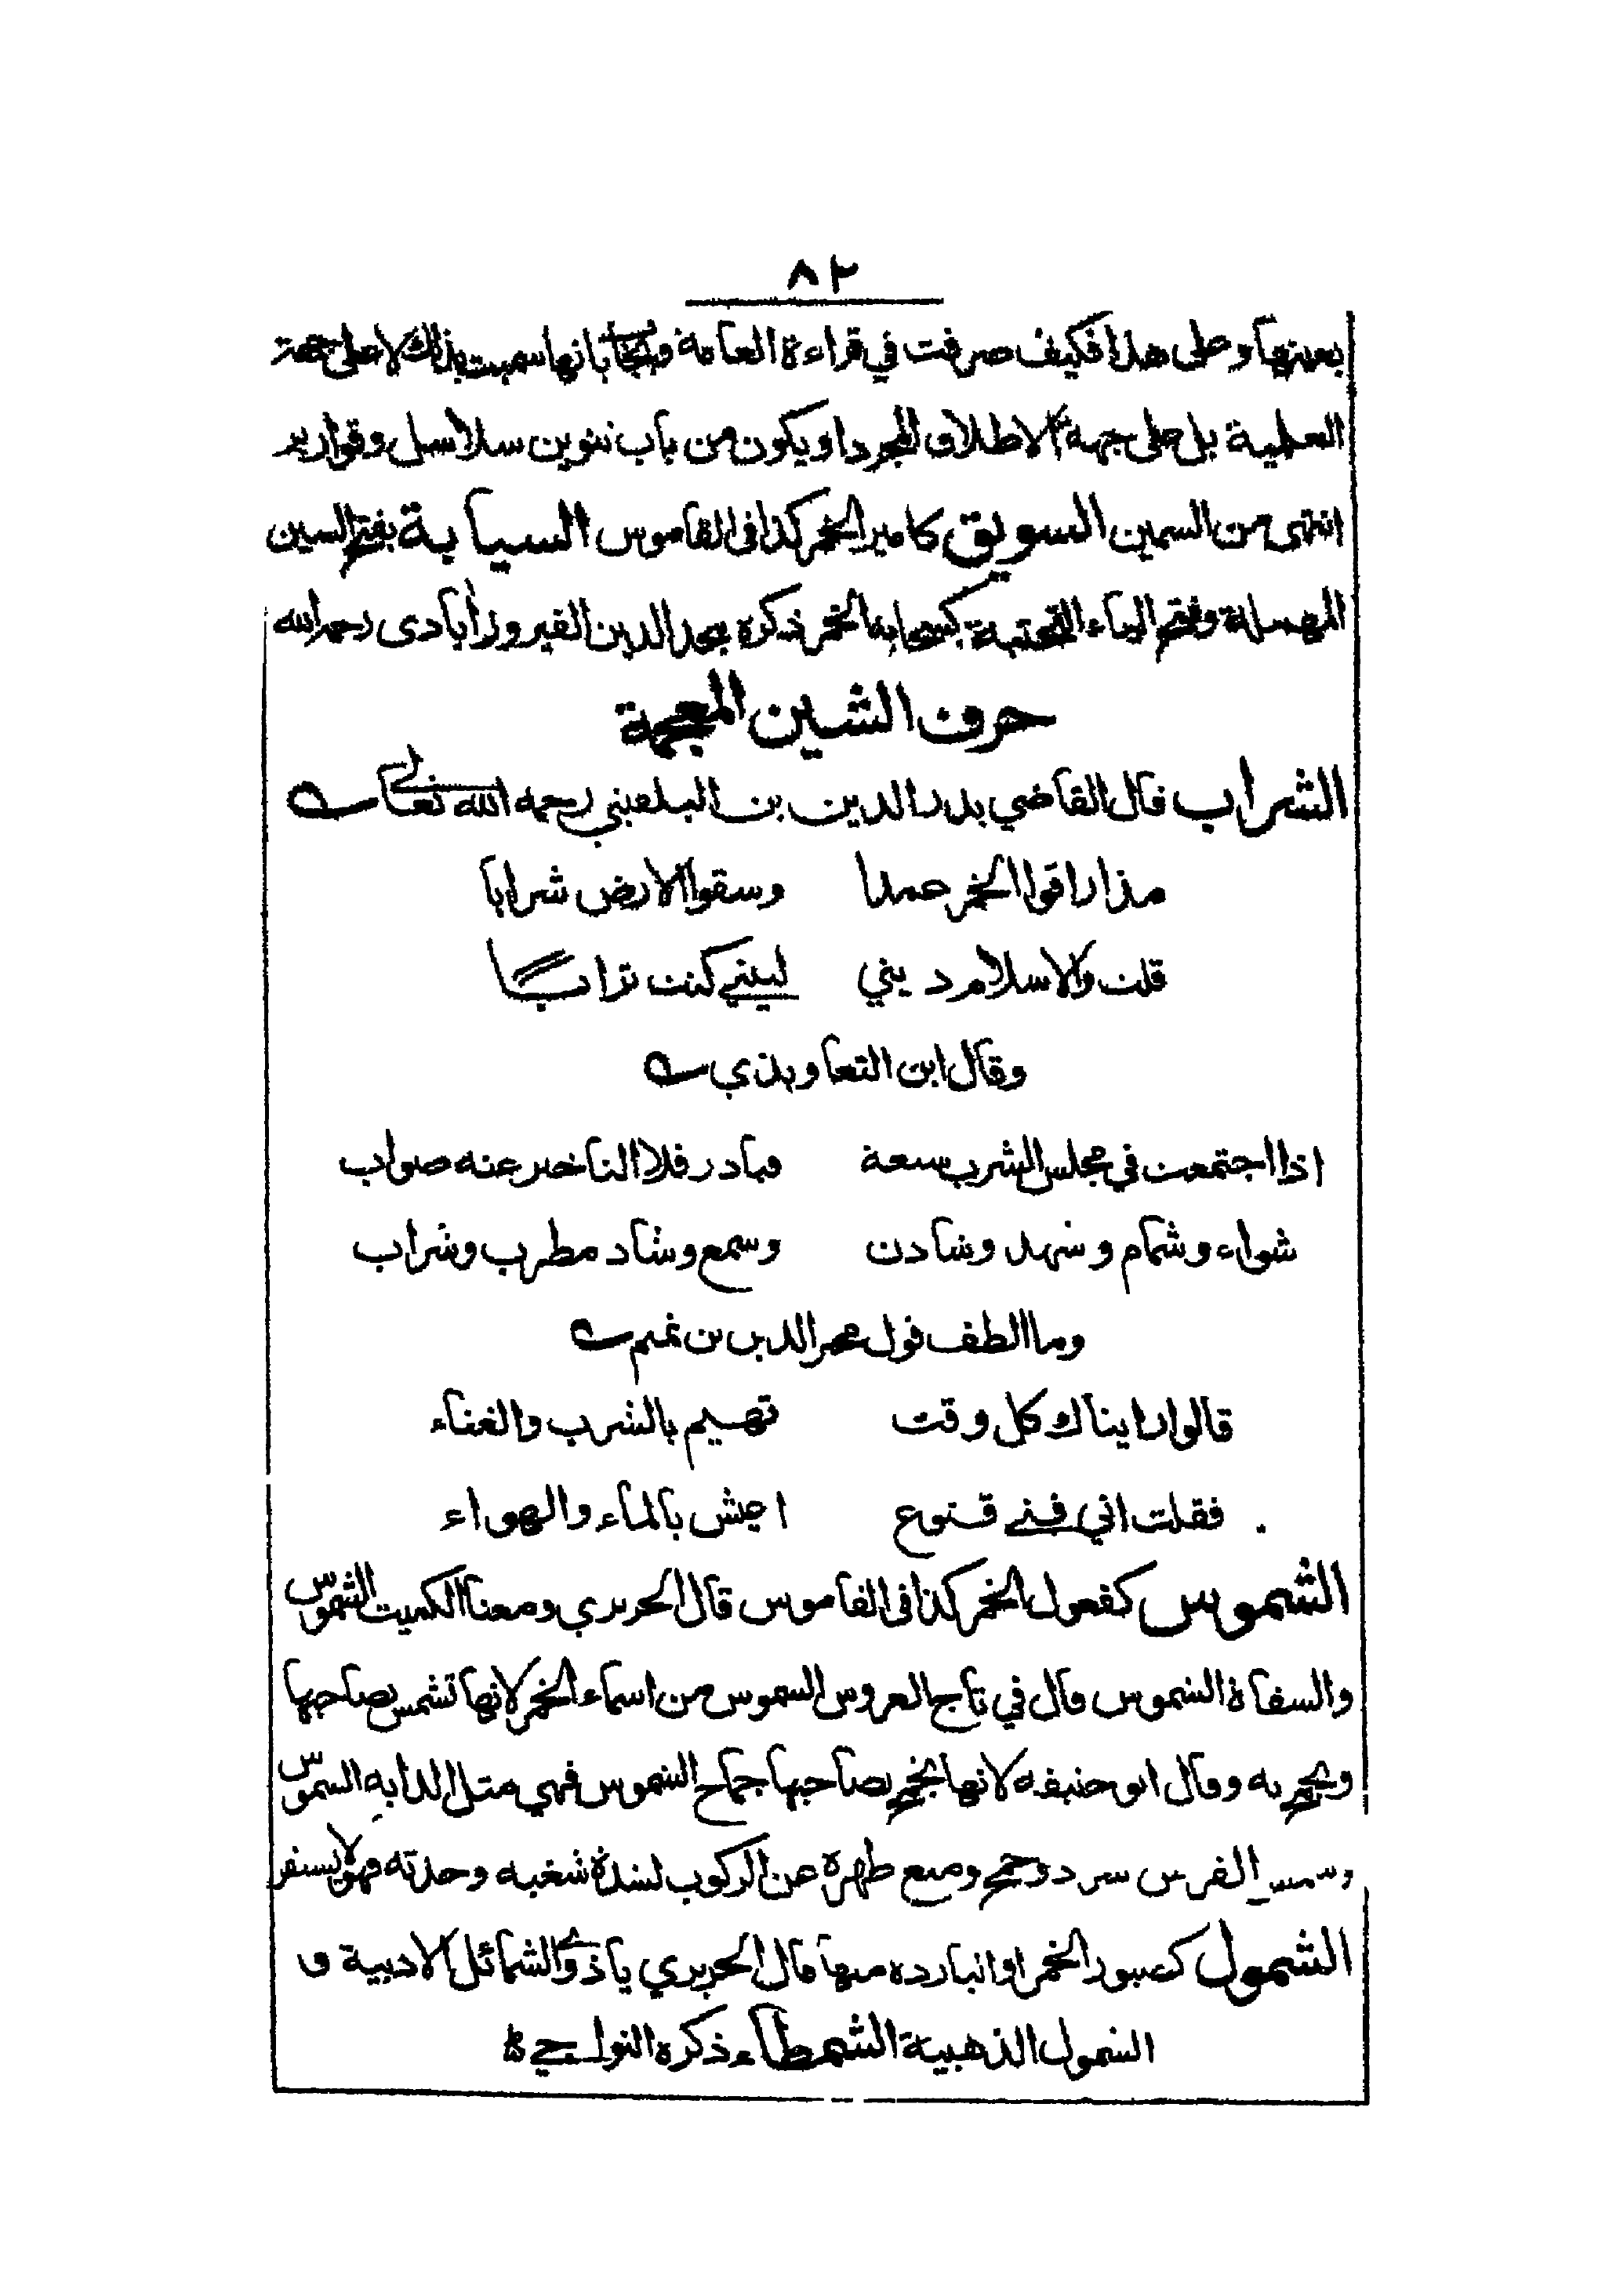 ٨٢
بعينها وعلى هذا فكيف صرفت في قراءة العامة ويجاب بانها سميت بذلك لا على جهة
العلمية بل على جهة الاطلاق المجرد او يكون من باب تنوين سلاسل وقوارير
انتهى من السمين السويق كامير الخمر كذا فى القاموس السياية بفتح السين
المهملة وفتح الياء التحتية كسحابة الخمر ذكره مجد الدين الفيروز أبادى رحمه الله
حرف الشين المعجمة
الشراب قال القاضي بدر الدين بن البلعيني رحمه الله تعالى
مذ اراقوا الخمر عمدا وسقوا الارض شرابا
قلت والاسلام ديني ليتني كنت ترابا
وقال ابن التعاويذي
اذا اجتمعت في مجلس الشرب سبعة فبادر فلا التاخير عنه صواب
شواء وشمام وشهد وشادن وسمع وشاد مطرب وشراب
وما الطف قول مجير الدين بن تميم
قالوا رايناك كل وقت تهيم بالشرب والغناء
فقلت اني فتى قنوع اعيش بالماء والهواء
الشموس كفعول الخمر كذا فى القاموس قال الحريري ومعنا الكميت الشموس
والسقاة الشموس قال في تاج العروس الشموس من اسماء الخمر لانها تشمس بصاحبها
وتجمح به وقال ابو حنيفه لانها تجمح بصاحبها جماح الشموس فهي مثل الدابه الشموس
وشمس الفرس شرد وجمح ومنع ظهره عن الركوب لشدة شغبه وحدته فهو لا يستقر
الشمول كصبور الخمر او الباردة منها قال الحريري يا ذوي الشمائل الادبية و
الشمول الذهبية الشمطاء ذكره النواجي